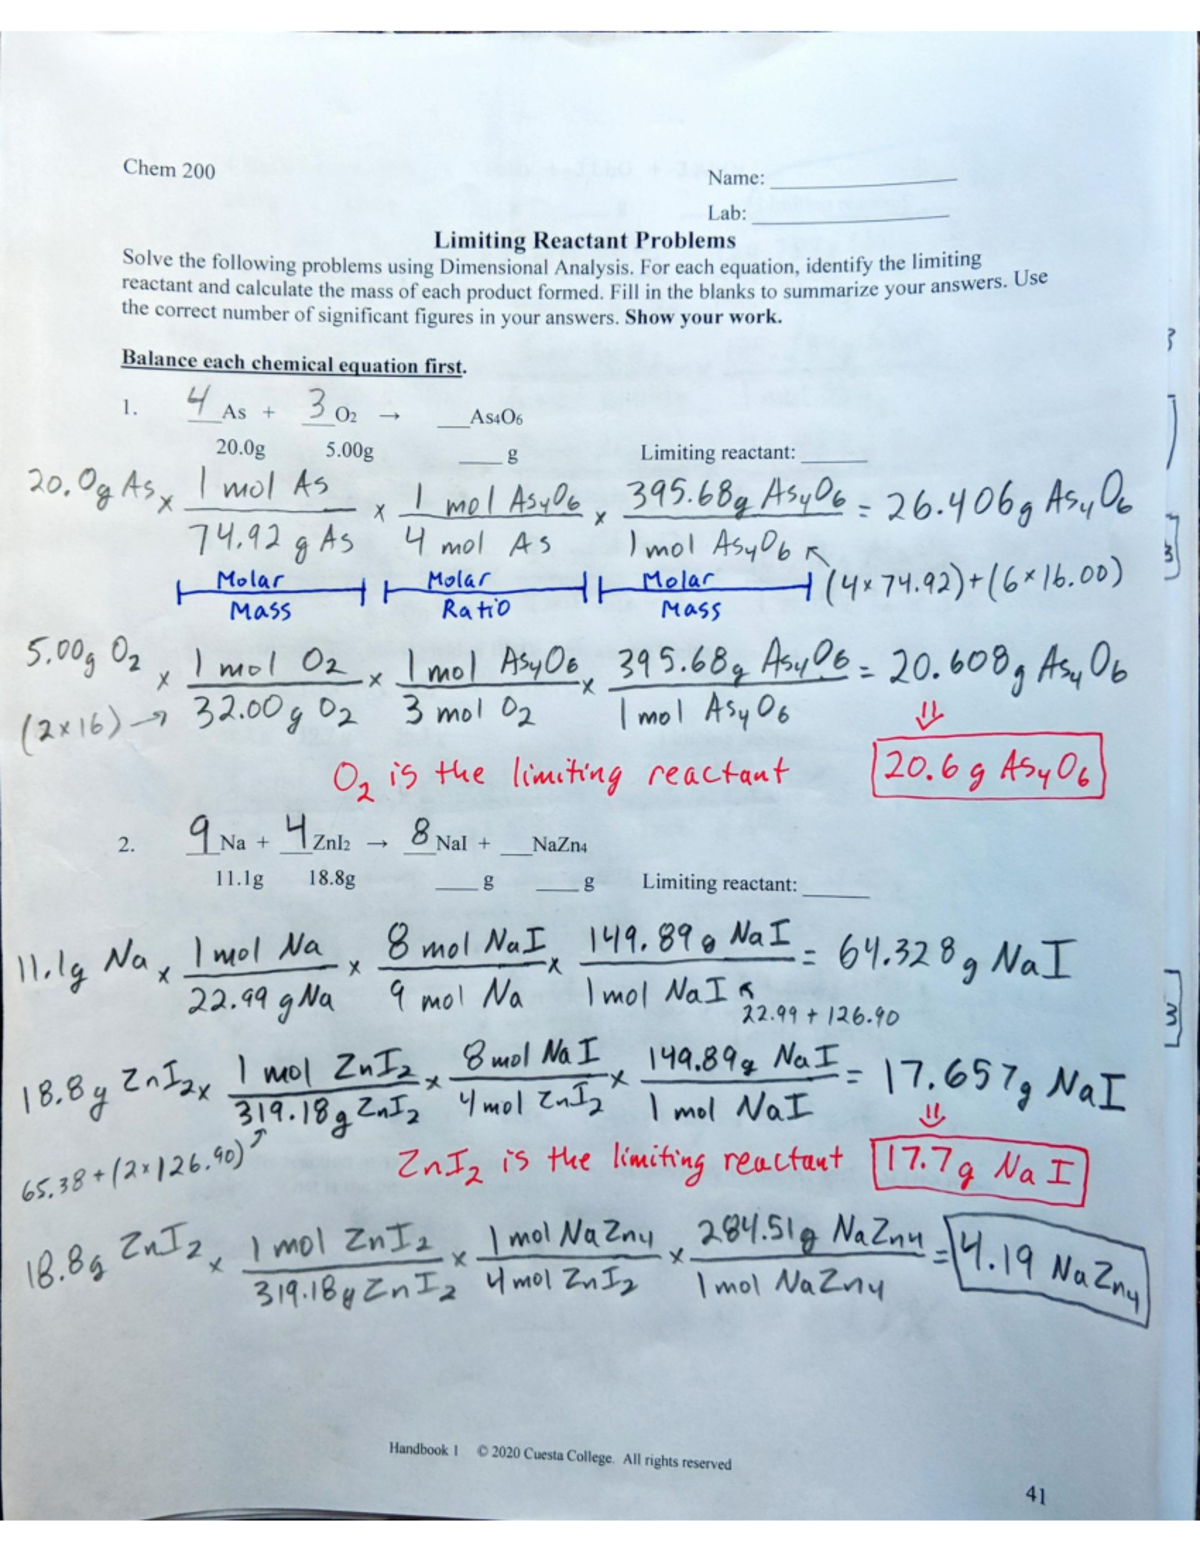 Chem 200
Name: ___
Lab: ___
Limiting Reactant Problems
Solve the following problems using Dimensional Analysis. For each equation, identify the limiting
reactant and calculate the mass of each product formed. Fill in the blanks to summarize your answers. Use
the correct number of significant figures in your answers. Show your work.
Balance each chemical equation first.
1. 4 As + 3 O2 → ___As4O6
20.0g 5.00g ___ g Limiting reactant: ___
20.0g As x 1 mol As / 74.92 g As x 1 mol As4O6 / 4 mol As x 395.68g As4O6 / 1 mol As4O6 = 26.406g As4O6
(4x74.92)+(6x16.00)
Molar Mass Molar Ratio Molar Mass
5.00g O2 x 1 mol O2 / 32.00g O2 x 1 mol As4O6 / 3 mol O2 x 395.68g As4O6 / 1 mol As4O6 = 20.608g As4O6
(2x16) → ⇓
O2 is the limiting reactant 20.6g As4O6
2. 9 Na + 4 ZnI2 → 8 NaI + ___NaZn4
11.1g 18.8g ___ g ___ g Limiting reactant: ___
11.1g Na x 1 mol Na / 22.99 gNa x 8 mol NaI / 9 mol Na x 149.89g NaI / 1 mol NaI = 64.328g NaI
22.99 + 126.90
18.8g ZnI2 x 1 mol ZnI2 / 319.18g ZnI2 x 8 mol NaI / 4 mol ZnI2 x 149.89g NaI / 1 mol NaI = 17.657g NaI
65.38+(2x126.90) ⇓
ZnI2 is the limiting reactant 17.7g NaI
18.8g ZnI2 x 1 mol ZnI2 / 319.18g ZnI2 x 1 mol NaZn4 / 4 mol ZnI2 x 284.51g NaZn4 / 1 mol NaZn4 = 4.19 NaZn4
Handbook 1 © 2020 Cuesta College. All rights reserved
41